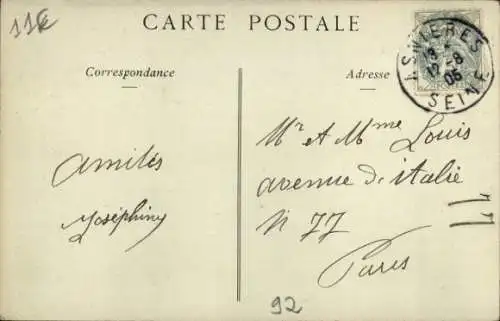 11€
CARTE POSTALE
Correspondance
Adresse
ASNIERES
12 -8
05
SEINE
Mr et Mme Louis
avenue d'italie
N 77
Paris
amitiés
Joséphine
92